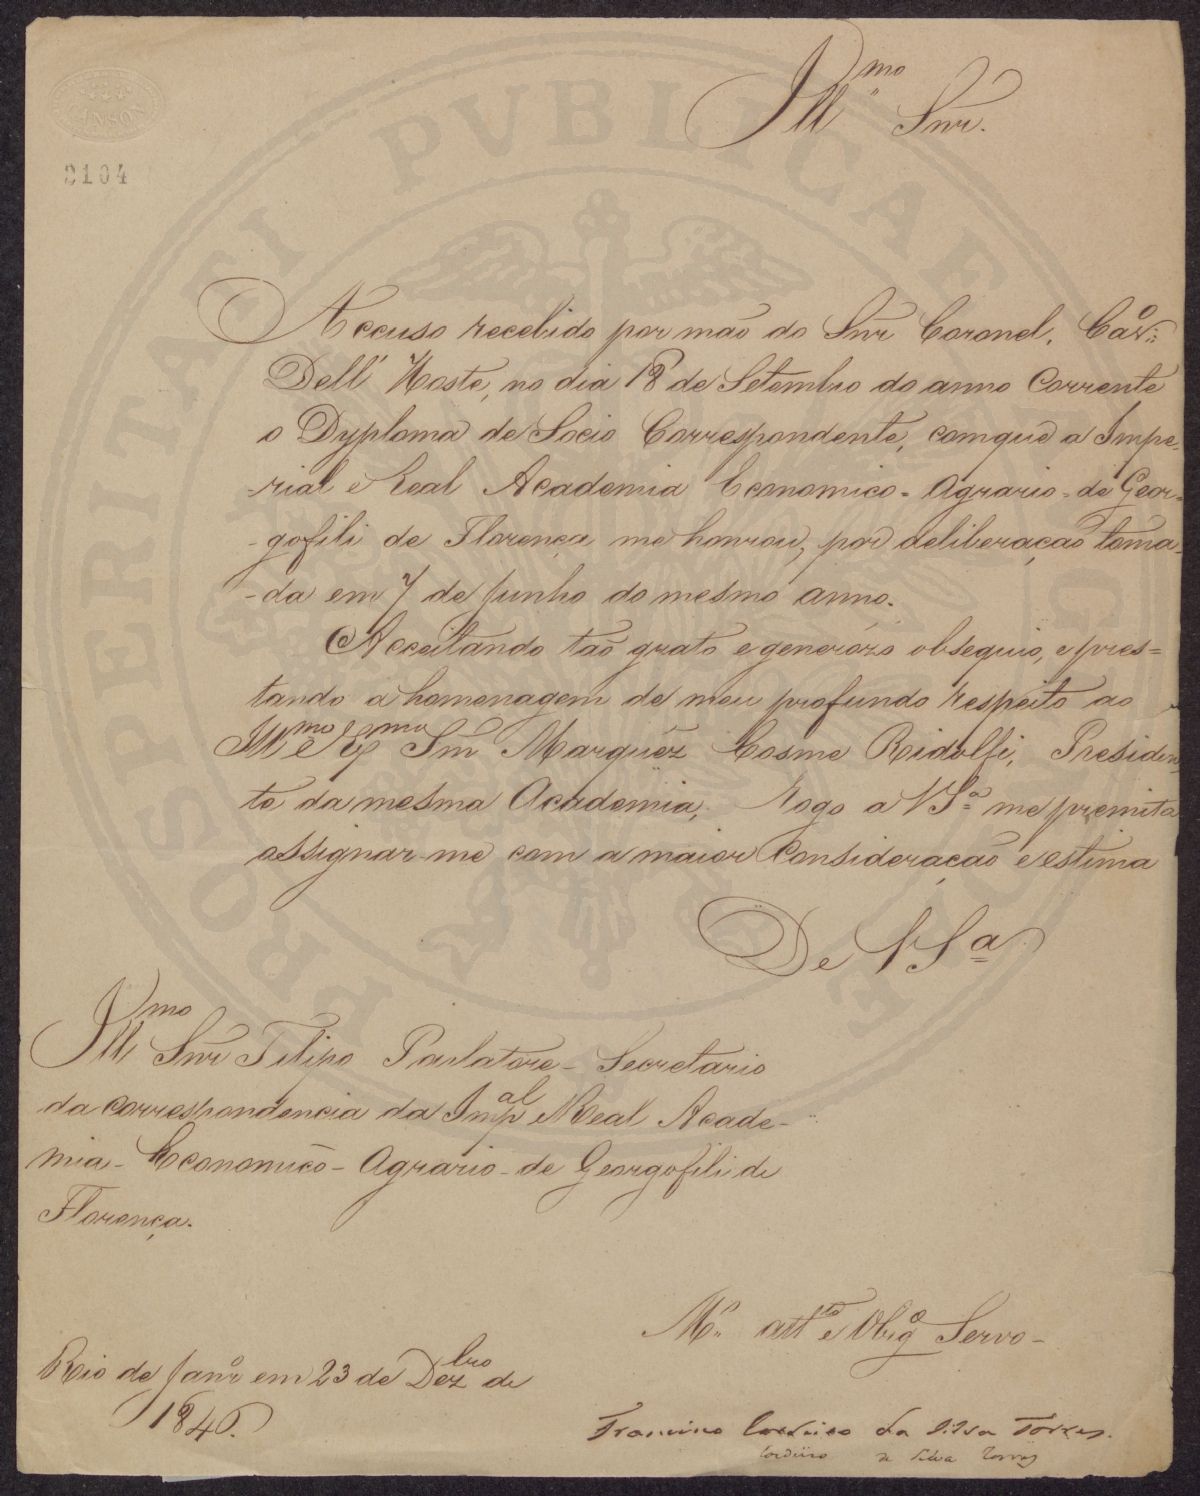 Illmo Snr.
2104
PROSPERITATI PVBLICAE
Accuso recebido por mão do Snr Coronel, Cavo:
Dell' Hoste, no dia 18 de Setembro do anno Corrente
o Dyploma de Socio Correspondente, comque a Impe-
-rial e Real Academia Economico-Agrario-de Geor-
-gofili de Florença me honrou, por deliberação toma-
-da em 7 de Junho do mesmo anno.
Acceitando tão grato e generózo obsequio, e pres=
tando a homenagem de meu profundo respeito ao
Illmo e Exmo Snr Marquéz Cosme Ridolfi, Presiden-
te da mesma Academia, Rogo a VSa me premita
assignar-me com a maior Consideração e estima
De VSa
Illmo Snr Filipo Parlatore - Secretario
da correspondencia da Impal e Real Acade-
mia - Economico - Agrario - de Georgofili de
Florença.
Mo attto e Obrigo Servo -
Rio de Janro em 23 de Dezbro de
1846.
Francisco Cordeiro da Silva Torres.
Cordeiro da Silva Torres